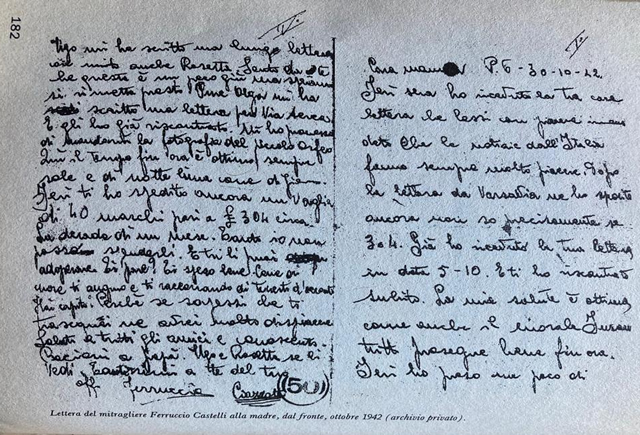 182
IV°
Ugo mi ha scritto una lunga lettera
così anche Rosetta. Sento che
questo è un poco giù ma speriamo
si rimetta presto. Pure Olga mi ha
scritto una lettera per Via Aerea
E gli ho già riscontrato. Mi ha promesso
di mandarmi la fotografia del piccolo
Qui il tempo fin'ora è ottimo sempre
sole e di notte luna come di giorno.
Ieri ti ho spedito ancora un Vaglia
di 40 marchi pari a £ 304 circa.
La decade di un mese. Tanto io non
posso spenderli. E tu li puoi
adoperare
Perché se sapessi che tu
ne avrei molto dispiacere
Saluti a tutti gli amici e conoscenti.
Bacioni a Papà. Ugo e Rosetta se li
vedi. e a te dal tuo
aff. Ferruccio
50
I°
Cara mamma P. G - 30-10-42
Ieri sera ho ricevuto la tua cara
lettera che lessi con piacere
dato che le notizie dall'Italia
fanno sempre molto piacere. Dopo
la lettera da Varsavia ne ho spedite
ancora non so precisamente se
3 o 4. Già ho ricevuto la tua lettera
in data 5-10. E ti ho riscontrato
subito. La mia salute è ottima
come anche il morale
tutto prosegue bene fin ora.
Ieri ho preso un poco di
Lettera del mitragliere Ferruccio Castelli alla madre, dal fronte, ottobre 1942 (archivio privato).